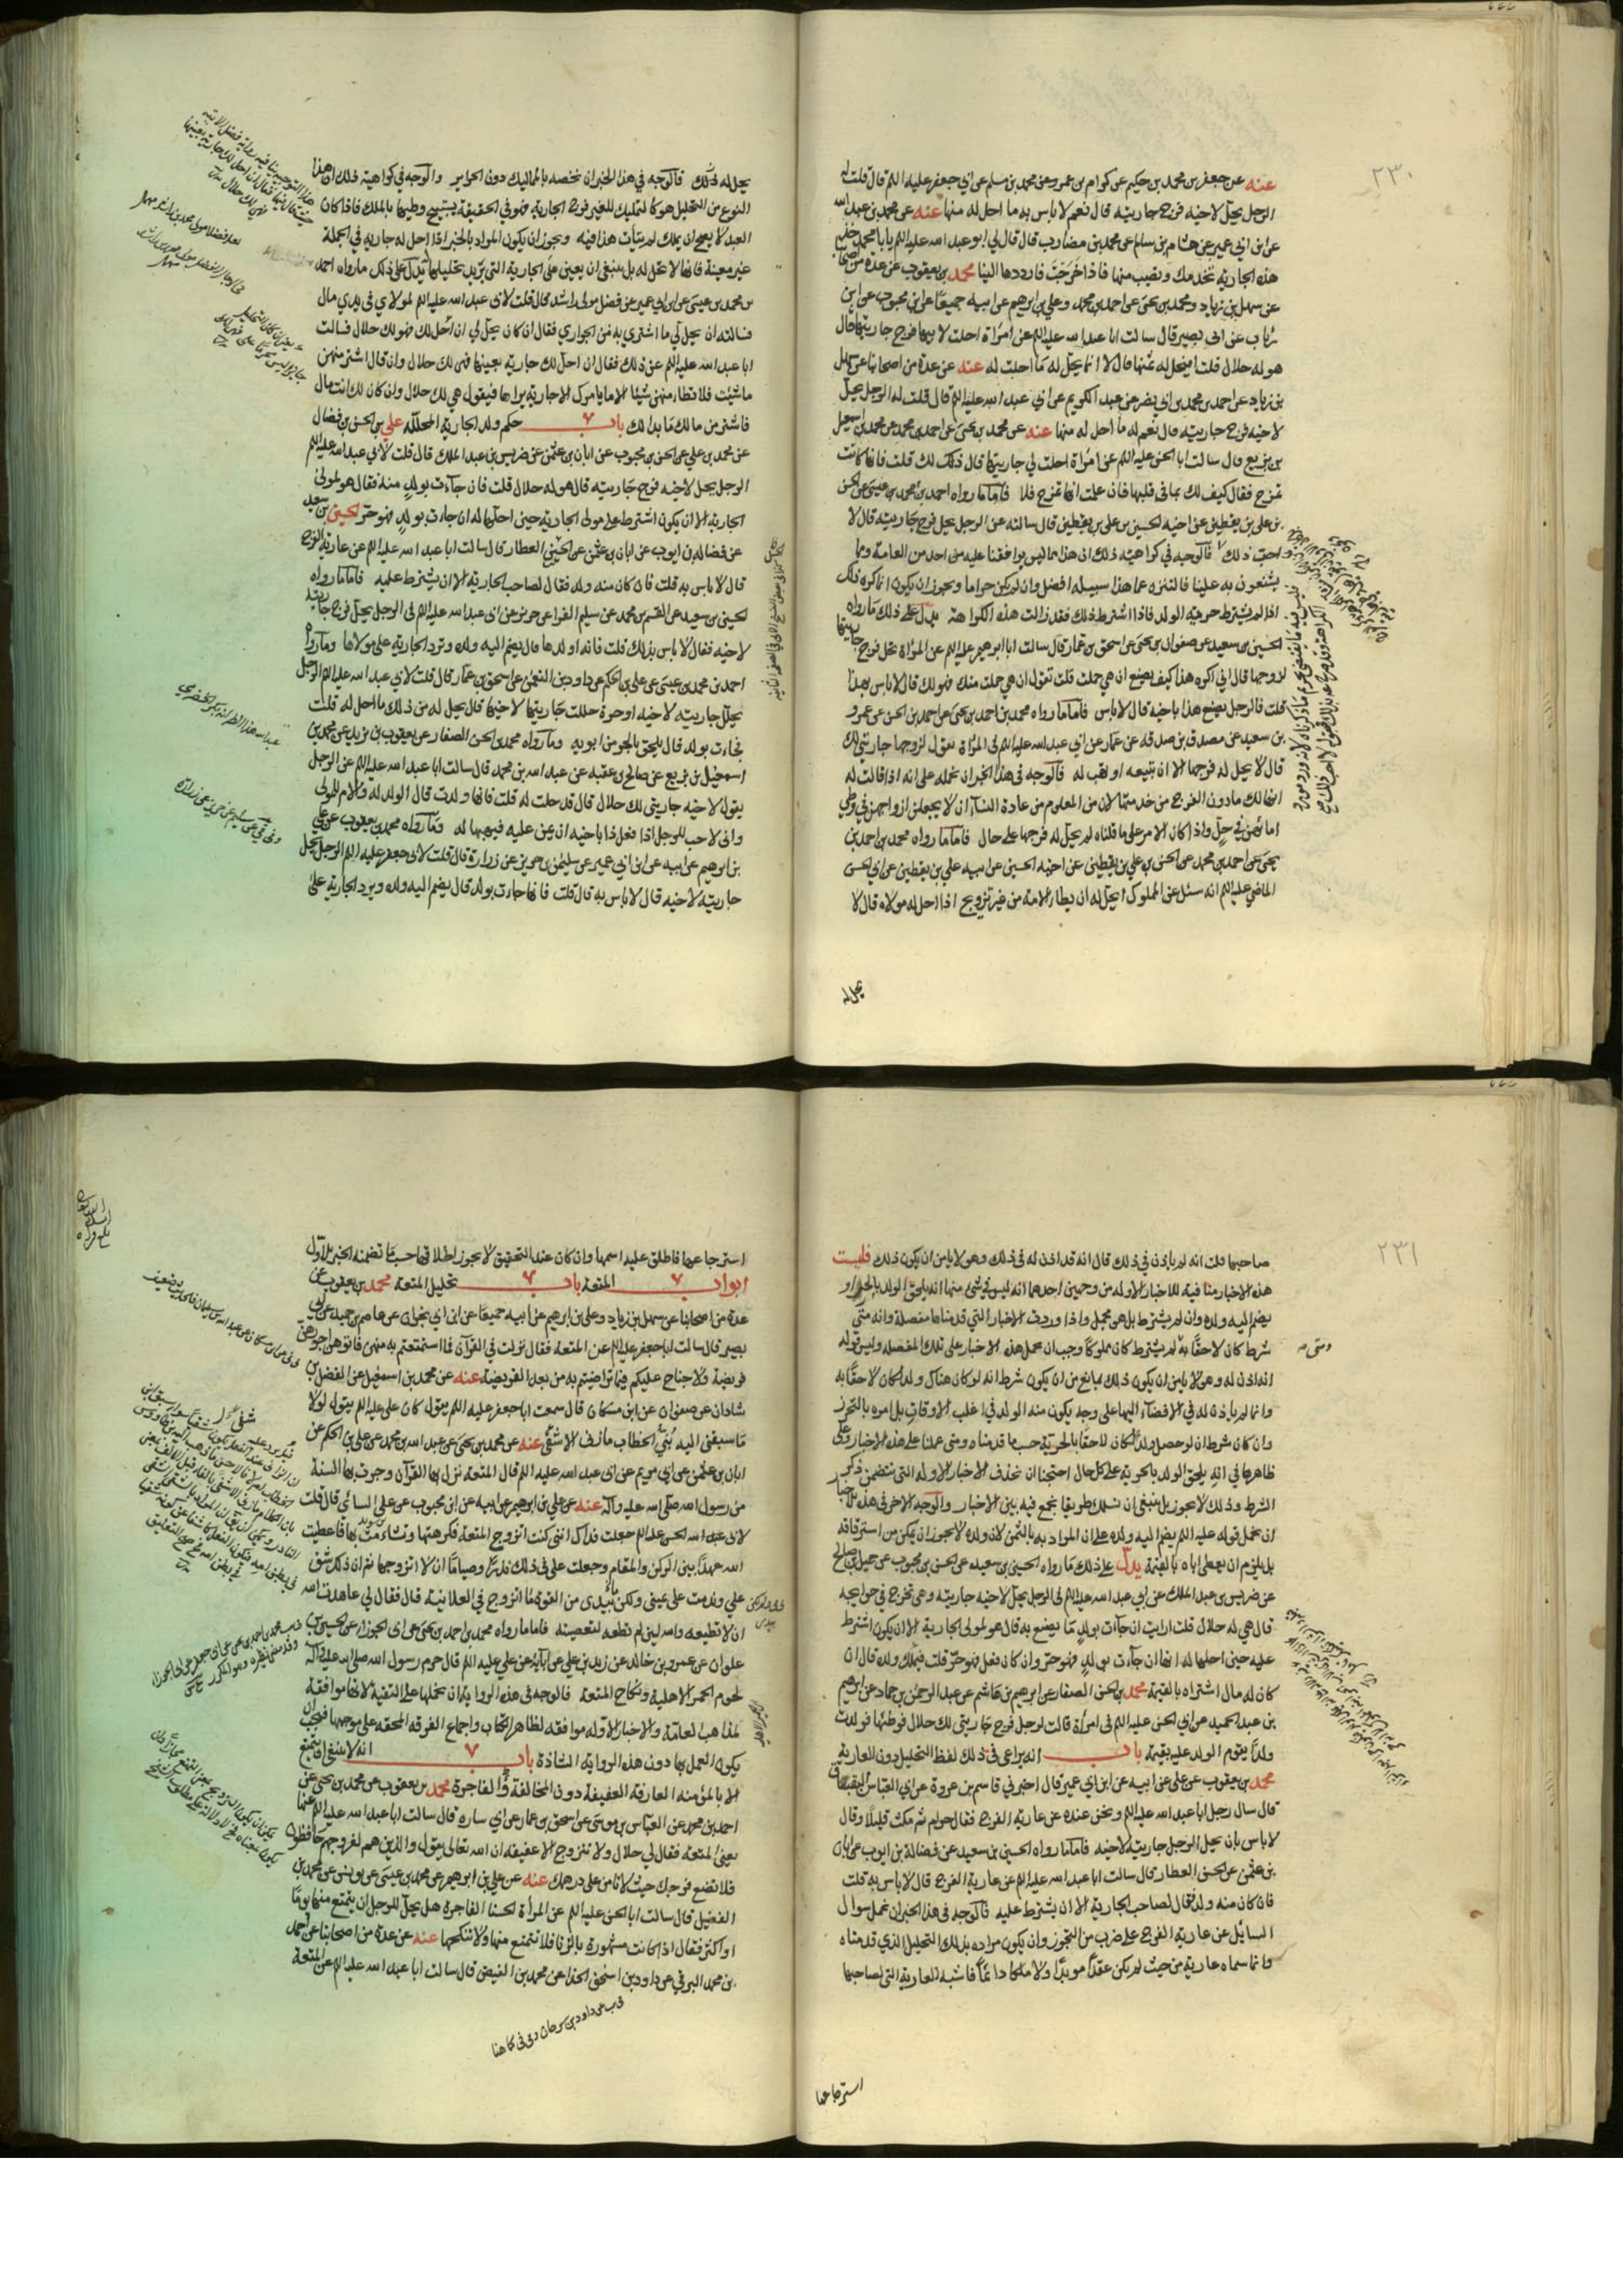 ٢٣٠
عنه عن جعفر بن محمد بن حكيم عن كرام بن عمرو عن محمد بن مسلم عن ابي جعفر عليه السلم قال قلت له
الرجل يحل لاخيه فرج جاريته قال نعم لا باس به ما احل له منها عنه عن محمد بن عبد الله
عن ابن ابي عمير عن هشام بن سالم عن محمد بن مضارب قال قال لي ابو عبد الله عليه السلم يا با محمد خذ
هذه الجارية تخدمك وتصيب منها فاذا خرجت فارددها الينا محمد بن يعقوب عن عدة من اصحابنا
عن سهل بن زياد ومحمد بن يحيى عن احمد بن محمد وعلي بن ابرهيم عن ابيه جميعا عن ابن محبوب عن ابن
رئاب عن ابي بصير قال سالت ابا عبد الله عليه السلم عن امراة احلت لابنها فرج جاريتها قال
هو له حلال قلت افيحل له ثمنها قال لا انما يحل له ما احلت له عنه عن عدة من اصحابنا عن سهل
بن زياد عن احمد بن محمد بن ابي نصر عن عبد الكريم عن ابي عبد الله عليه السلم قال قلت له الرجل يحل
لاخيه فرج جاريته قال نعم له ما احل له منها عنه عن محمد بن يحيى عن احمد بن محمد عن محمد بن اسمعيل
بن بزيع قال سالت ابا الحسن عليه السلم عن امراة احلت لي جاريتها قال ذلك لك قلت فانها كانت
تمزح فقال كيف لك بما في قلبها فان علمت انها تمزح فلا فاما ما رواه احمد بن محمد بن عيسى عن الحسن
بن علي بن يقطين عن اخيه الحسين بن علي بن يقطين قال سالته عن الرجل يحل فرج جاريته قال لا
احب ذلك فالوجه في كراهية ذلك ان هذا مما ليس يوافقنا عليه من احد من العامة ومما
يشنعون به علينا فالتنزه عما هذا سبيله افضل وان لم يكن حراما ويجوز ان يكون انما كره ذلك
اذا لم يشترط حرية الولد فاذا اشترط ذلك فقد زالت هذه الكراهة يدل على ذلك ما رواه
الحسين بن سعيد عن صفوان بن يحيى عن اسحق بن عمار قال سالت ابا ابرهيم عليه السلم عن المراة تحل فرج جاريتها
لزوجها قال اني اكره هذا كيف يصنع ان هي حملت قلت تقول ان هي حملت منك فهو لك قال لا باس بهذا
قلت فالرجل يصنع هذا باخيه قال لا باس فاما ما رواه محمد بن احمد بن يحيى عن احمد بن الحسن عن عمرو
بن سعيد عن مصدق بن صدقه عن عمار عن ابي عبد الله عليه السلم في المراة تقول لزوجها جاريتي لك
قال لا يحل له فرجها الا ان تبيعه او تهب له فالوجه في هذا الخبر ان نحمله على انه اذا قالت له
انها لك مادون الفرج من خدمتها لان من المعلوم من عادة النساء ان لا يجعلن ازواجهن في وطي
امائهن في حل واذا كان الامر على ما قلناه لم يحل له فرجها على حال فاما ما رواه محمد بن احمد بن
يحيى عن احمد بن محمد عن الحسن بن علي بن يقطين عن اخيه الحسين عن ابيه علي بن يقطين عن ابي الحسن
الماضي عليه السلم انه سئل عن المملوك ايحل له ان يطا الامة من غير تزويج اذا احل له مولاه قال لا
يحل له
يحل له ذلك فالوجه في هذا الخبر ان نخصه بالمماليك دون الحراير والوجه في كراهية ذلك ان هذا
النوع من التحليل هو كالتمليك للغير فرج الجارية فهو في الحقيقة يستبيح وطيها بالملك فاذا كان
العبد لا يصح ان يملك لم يتات هذا فيه ويجوز ان يكون المراد بالخبر اذا احل له جارية في الجملة
غير معينة فانها لا تحل له بل ينبغي ان يعين على الجارية التي يريد تحليلها يدل على ذلك ما رواه احمد
بن محمد بن عيسى عن ابن ابي عمير عن فضل مولى راشد قال قلت لابي عبد الله عليه السلم لمولاي في يدي مال
فسالته ان يحل لي ما اشتري به من الجواري فقال ان كان يحل لي ان احل لك فهو لك حلال فسالت
ابا عبد الله عليه السلم عن ذلك فقال ان احل لك جارية بعينها فهي لك حلال وان قال اشتر منهن
ماشئت فلا تطا منهن شيئا الا ما يامرك الا جارية يراها فيقول هي لك حلال وان كان لك انت مال
فاشتر من مالك ما بدا لك باب حكم ولد الجارية المحللة علي بن الحسن بن فضال
عن محمد بن علي عن الحسن بن محبوب عن ابان بن عثمن عن ضريس بن عبد الملك قال قلت لابي عبد الله عليه السلم
الرجل يحل لاخيه فرج جاريته قال هو له حلال قلت فان جاءت بولد منه فقال هو لمولى
الجارية الا ان يكون اشترط على مولى الجارية حين احلها له ان جاءت بولد فهو حر الحسين بن سعيد
عن فضالة بن ايوب عن ابان بن عثمن عن الحسين العطار قال سالت ابا عبد الله عليه السلم عن عارية الفرج
قال لا باس به قلت فان كان منه ولد فقال لصاحب الجارية الا ان يشترط عليه فاما ما رواه
الحسين بن سعيد عن القسم بن محمد عن سليم الفرا عن حريز عن ابي عبد الله عليه السلم في الرجل يحل فرج جاريته
لاخيه فقال لا باس بذلك قلت فانه اولدها قال يضم اليه ولده وترد الجارية على مولاها وما رواه
احمد بن محمد بن عيسى عن علي بن الحكم عن داود بن النعمن عن اسحق بن عمار قال قلت لابي عبد الله عليه السلم الرجل
يحل جاريته لاخيه او حرة حللت جاريتها لاخيها قال يحل له من ذلك ما احل له قلت
فجاءت بولد قال يلحق بالحر من ابويه وما رواه محمد بن الحسن الصفار عن يعقوب بن يزيد عن محمد بن
اسمعيل بن بزيع عن صالح بن عقبه عن عبد الله بن محمد قال سالت ابا عبد الله عليه السلم عن الرجل
يقول لاخيه جاريتي لك حلال قال قد حلت له قلت فانها ولدت قال الولد له والام للمولى
واني لاحب للرجل اذا فعل ذا باخيه ان يمن عليه فيهبها له وما رواه محمد بن يعقوب عن علي
بن ابرهيم عن ابيه عن ابن ابي عمير عن سليمن بن حريز عن زرارة قال قلت لابي جعفر عليه السلم الرجل يحل
جاريته لاخيه قال لا باس به قال قلت فانها جاءت بولد قال يضم اليه ولده ويرد الجارية على
٢٣١
صاحبها قلت انه لم ياذن في ذلك قال انه قد اذن له في ذلك وهو لا يامن ان يكون ذلك فليست
هذه الاخبار منافية للاخبار الاوله من وجهين احدهما انه ليس في شي منها انه يلحق الولد بالحر او
يضم اليه ولده وان لم يشترط بل هي مجمل واذا وردت الاخبار التي قدمناها مفصلة وانه متى
شرط كان لاحقا به لم يشترط كان مملوكا وجب ان نحمل هذه الاخبار على تلك المفصله وليس قوله
انه اذن له وهو لا يامن ان يكون ذلك بمانع من ان يكون شرط انه لو كان هناك ولد لكان لاحقا به
وانما لم ياذن له في الافضاء اليها على وجه يكون منه الولد في اغلب الاوقات بل امره بالتحرز
وان كان شرط ان لو حصل ولد لكان لاحقا بالحرية حسب ما قدمناه ومتى عملنا على هذه الاخبار وعلى
ظاهرها في انه يلحق الولد بالحرية على كل حال احتجنا ان نحذف الاخبار الاوله التي تتضمن ذكر
الشرط وذلك لا يجوز بل ينبغي ان نسلك طريقا نجمع فيه بين الاخبار والوجه الاخر في هذه الاخبار
ان نحمل قوله عليه السلم يضم اليه ولده على ان المراد به بالثمن لان ولده لا يجوز ان يكون من استرقاقه
بل يلزم ان يعطي اباه بالقيمة يدل على ذلك ما رواه الحسين بن سعيد عن الحسن بن محبوب عن جميل بن صالح
عن ضريس بن عبد الملك عن ابي عبد الله عليه السلم في الرجل يحل لاخيه جاريته وهي تخرج في حوايجه
قال هي له حلال قلت ارايت ان جاءت بولد ما يصنع به قال هو لمولى الجارية الا ان يكون اشترط
عليه حين احلها له انها ان جاءت بولد فهو حر وان كان فعل فهو حر قلت فيملك ولده قال ان
كان له مال اشتراه بالقيمة محمد بن الحسن الصفار عن ابرهيم بن هاشم عن عبد الرحمن بن حماد عن ابرهيم
بن عبد الحميد عن ابي الحسن عليه السلم في امراة قالت لرجل فرج جاريتي لك حلال فوطئها فولدت
ولدا يقوم الولد عليه بقيمة باب انه يراعى في ذلك لفظ التحليل دون العارية
محمد بن يعقوب عن علي عن ابيه عن ابن ابي عمير قال اخبرني قاسم بن عروة عن ابي العباس البقباق
قال سال رجل ابا عبد الله عليه السلم ونحن عنده عن عارية الفرج فقال حرام ثم مكث قليلا وقال
لا باس بان يحل الرجل جاريته لاخيه فاما ما رواه الحسين بن سعيد عن فضالة بن ايوب عن ابان
بن عثمن عن الحسن العطار قال سالت ابا عبد الله عليه السلم عن عارية الفرج قال لا باس به قلت
فان كان منه ولد فقال لصاحب الجارية الا ان يشترط عليه فالوجه في هذا الخبر ان نحمل سوال
السائل عن عارية الفرج على ضرب من التجوز وان يكون مراده بذلك التحليل الذي قدمناه
وانما سماه عارية من حيث لم يكن عقدا موبدا ولا ملكا دائما فاشبه العارية التي لصاحبها
استرجاعها
استرجاعها فاطلق عليه اسمها وان كان عند التحقيق لا يجوز اطلاقها حسب ما تضمنه الخبر الاول
ابواب المتعة باب تحليل المتعة محمد بن يعقوب عن
عدة من اصحابنا عن سهل بن زياد وعلي بن ابرهيم عن ابيه جميعا عن ابن ابي نجران عن عاصم بن حميد عن ابي
بصير قال سالت ابا جعفر عليه السلم عن المتعة فقال نزلت في القرآن فما استمتعتم به منهن فاتوهن اجورهن
فريضة ولا جناح عليكم فيما تراضيتم به من بعد الفريضة عنه عن محمد بن اسمعيل عن الفضل بن
شاذان عن صفوان عن ابن مسكان قال سمعت ابا جعفر عليه السلم يقول كان علي عليه السلم يقول لولا
ما سبقني اليه بني الخطاب ما زنى الا شقي عنه عن محمد بن يحيى عن عبد الله بن محمد عن علي بن الحكم عن
ابان بن عثمن عن ابي مريم عن ابي عبد الله عليه السلم قال المتعة نزل بها القرآن وجرت بها السنة
من رسول الله صلى الله عليه وآله عنه عن علي بن ابرهيم عن ابيه عن ابن محبوب عن علي السائي قال قلت
لابي الحسن عليه السلم جعلت فداك انني كنت اتزوج المتعة فكرهتها وتشاءمت بها فاعطيت
الله عهدا بين الركن والمقام وجعلت علي في ذلك نذرا وصياما ان لا اتزوجها ثم ان ذلك شق
علي وندمت على يميني ولكن بيدي من القوة ما اتزوج في العلانية قال فقال لي عاهدت الله
ان لا تطيعه والله لئن لم تطعه لتعصينه فاما ما رواه محمد بن احمد بن يحيى عن ابي الجوزا عن الحسين بن
علوان عن عمرو بن خالد عن زيد بن علي عن آبائه عن علي عليه السلم قال حرم رسول الله صلى الله عليه وآله
لحوم الحمر الاهلية ونكاح المتعة فالوجه في هذه الرواية ان نحملها على التقية لانها موافقة
لمذاهب العامة والاخبار الاوله موافقه لظاهر الكتاب واجماع الفرقه المحقه على موجبها فيجب ان
يكون العمل بها دون هذه الرواية الشاذة باب انه لا ينبغي ان يتمتع
الا بالمؤمنه العارفة العفيفة دون المخالفة والفاجرة محمد بن يعقوب عن محمد بن يحيى عن
احمد بن محمد عن العباس بن موسى عن اسحق بن عمار عن ابي ساره قال سالت ابا عبد الله عليه السلم عنها
يعني المتعة فقال لي حلال ولا تتزوج الا عفيفه ان الله تعالى يقول والذين هم لفروجهم حافظون
فلا تضع فرجك حيث لا تامن على درهمك عنه عن علي بن ابرهيم عن محمد بن عيسى عن يونس عن محمد بن
الفضيل قال سالت ابا الحسن عليه السلم عن المراة الحسنا الفاجرة هل يحل للرجل ان يتمتع منها يوما
او اكثر فقال اذا كانت مشهورة بالزنا فلا تتمتع منها ولا تنكحها عنه عن عدة من اصحابنا عن احمد
بن محمد البرقي عن داود بن اسحق الحذا عن محمد بن الفيض قال سالت ابا عبد الله عليه السلم عن المتعة